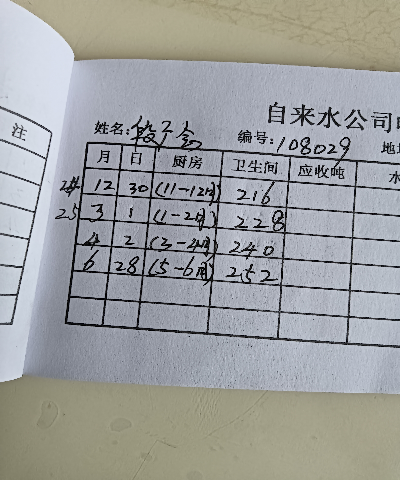 注
自来水公司
姓名: 段子会 编号: 108029 地
月 日 厨房 卫生间 应收吨 水
24 12 30 (11-12月) 216
25 3 1 (1-2月) 228
4 2 (3-4月) 240
6 28 (5-6月) 252